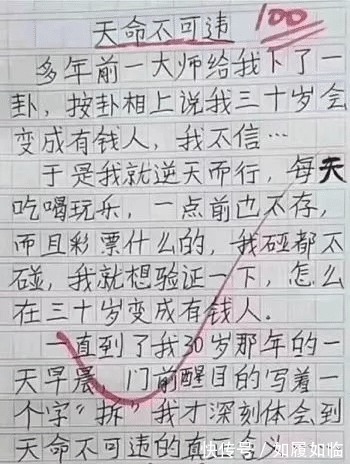 天命不可违
100
多年前一大师给我下了一
卦，按卦相上说我三十岁会
变成有钱人，我不信…
于是我就逆天而行，每天
吃喝玩乐，一点前也不存，
而且彩票什么的，我碰都不
碰，我就想验证一下，怎么
在三十岁变成有钱人。
一直到了我30岁那年的一
天早晨，门前醒目的写着一
个字“拆”我才深刻体会到
天命不可违的真
快传号/如履如临